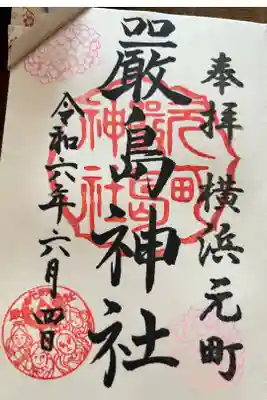 奉拝 横浜元町
嚴島神社
令和六年 六月 四日
元町
嚴島
神社